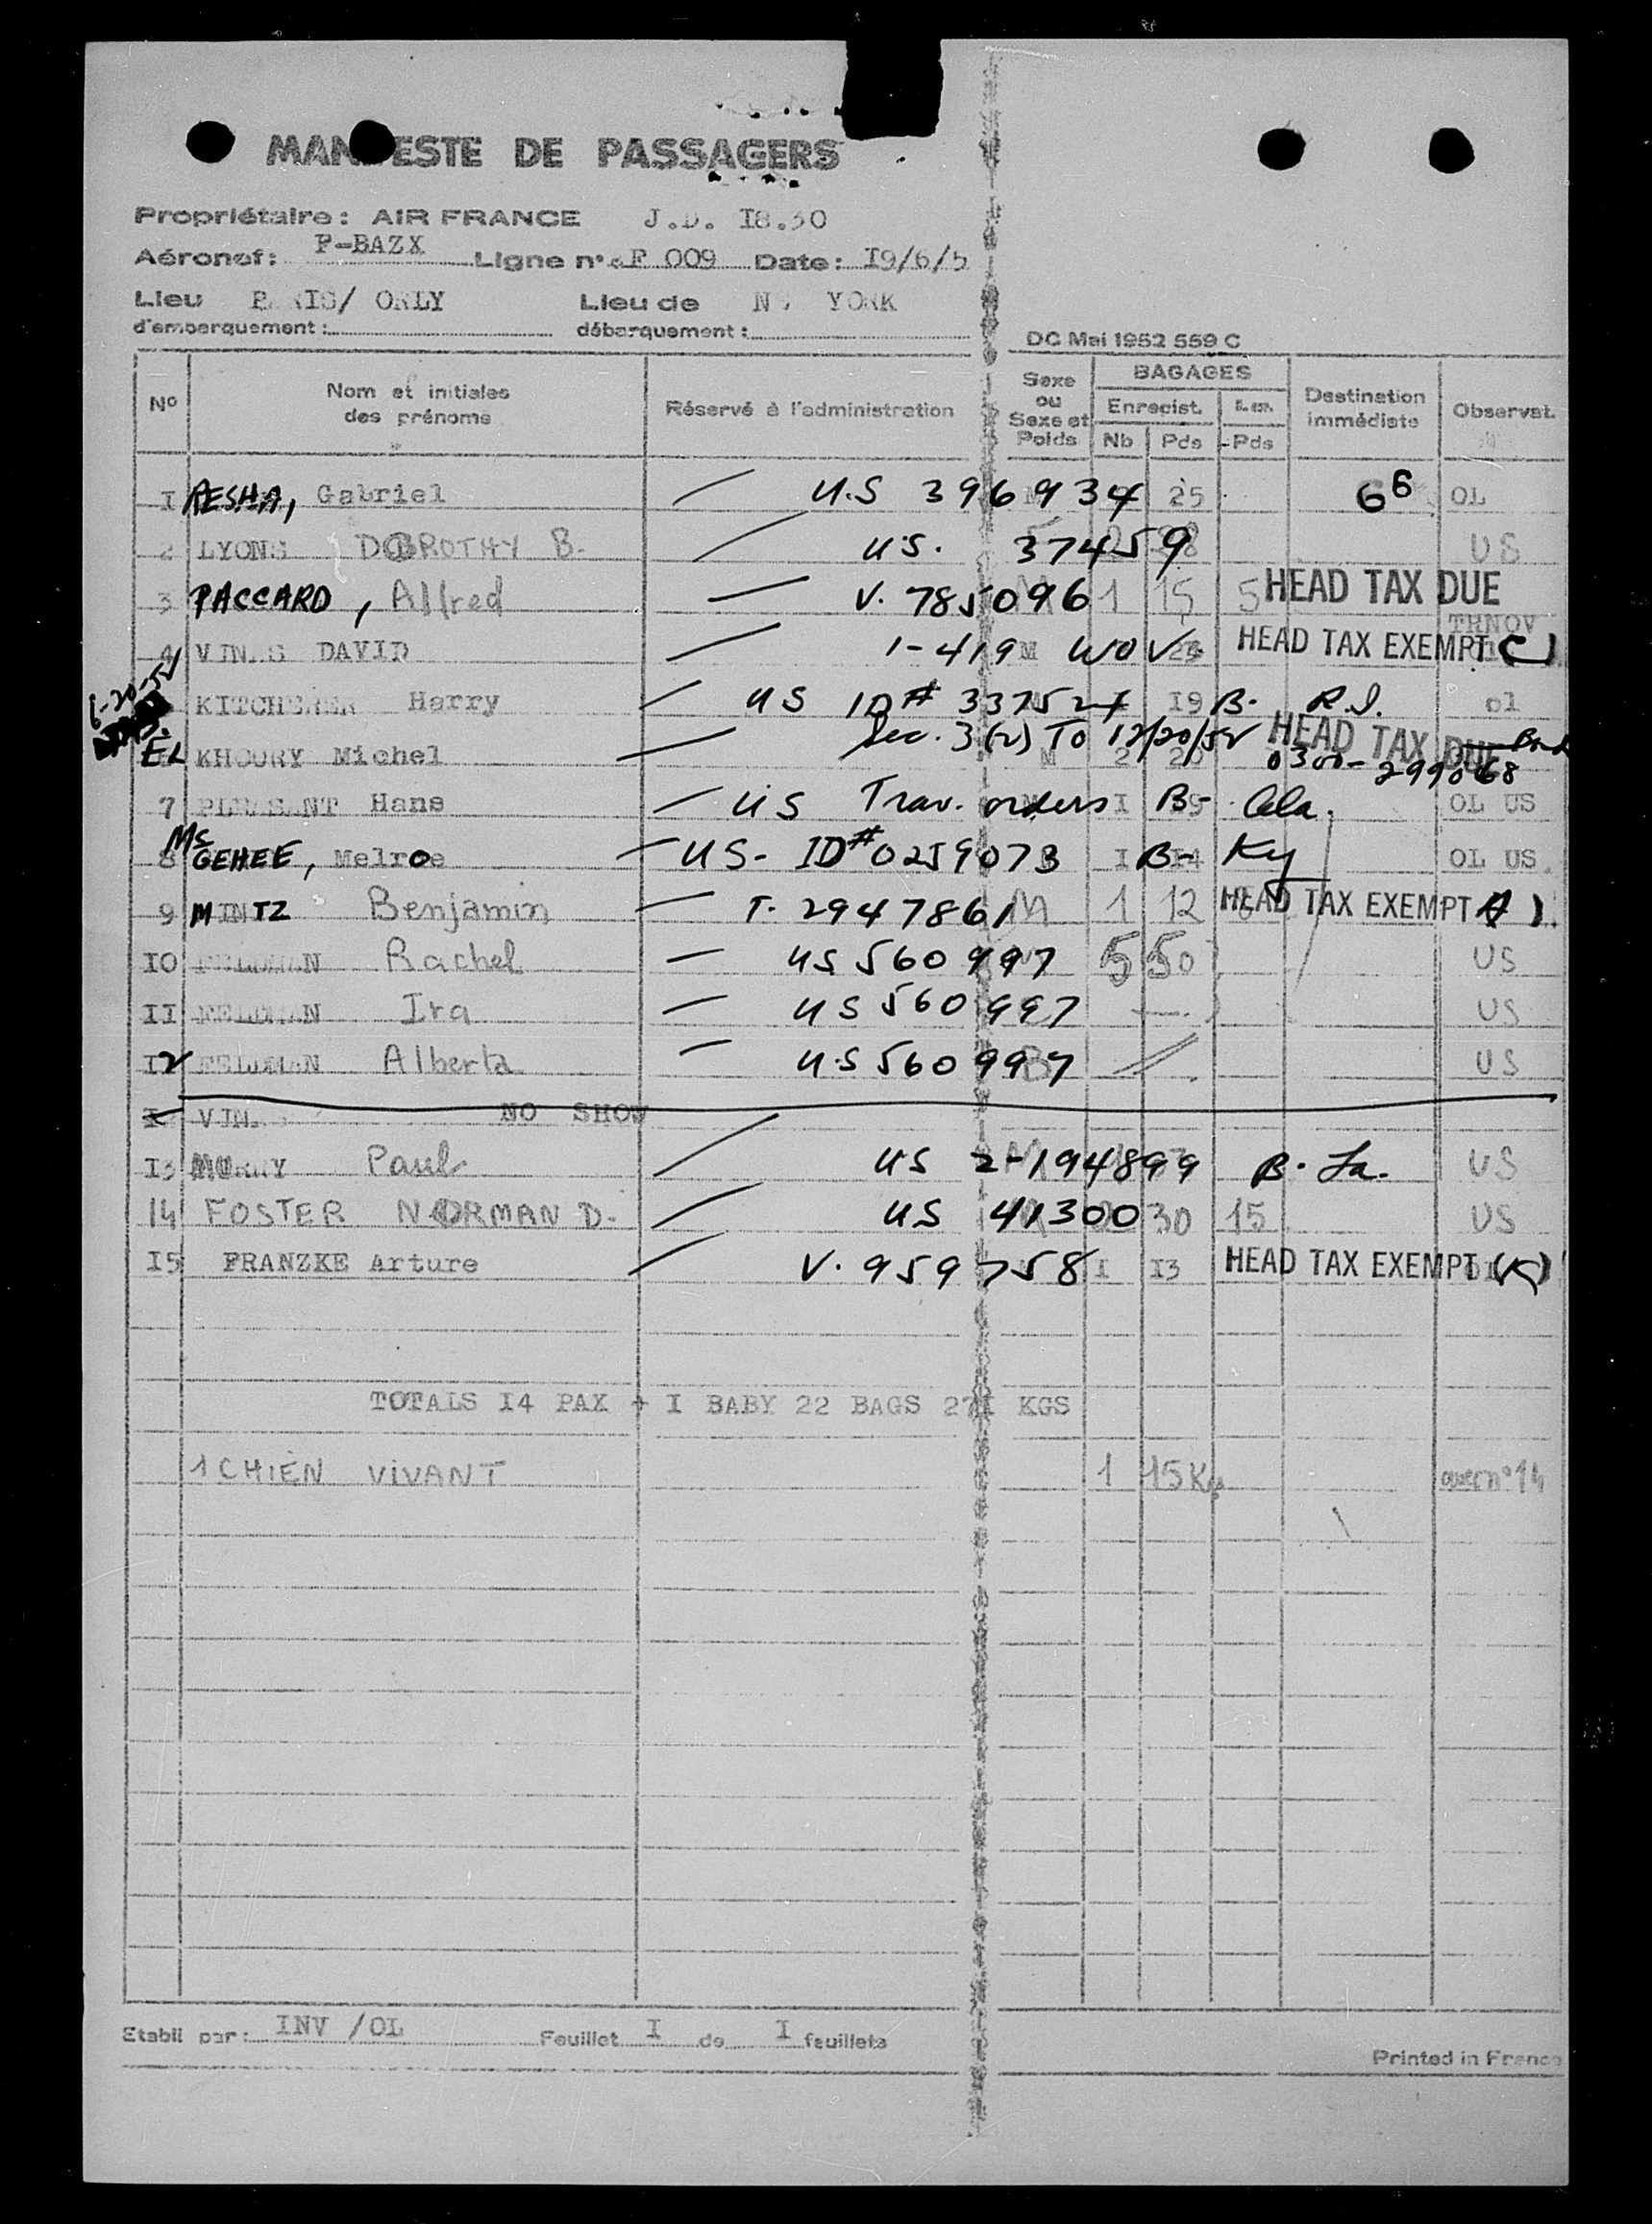 MANIFESTE DE PASSAGERS
Propriétaire: AIR FRANCE J.D. I8.30
Aéronef: F-BAZX Ligne n° F 009 Date: I9/6/5
Lieu d'embarquement: PARIS/ ORLY Lieu de débarquement: YORK
DC Mai 1952 559 C
No Nom et initiales des prénoms Réservé à l'administration Sexe ou Sexe et Poids BAGAGES Enregist. Nb Pds Pds Destination immédiate Observat.
I RESHA, Gabriel U.S 396934 25 6 6 OL
2 LYONS DOROTHY B. U.S. 37459 US
3 PACCARD, Alfred V. 785096 1 15 5 HEAD TAX DUE
4 DAVID 1-419 M WOV HEAD TAX EXEMPT C)
6-20-52
KITCHENER Harry US ID# 337524 I I9 B. R.I. ol
EL KHOURY Michel Sec. 3(2) To 12/20/52 M 2 20 HEAD TAX DUE Bond 0300-299068
7 Hans US Trav. orders I B- OL US
8 McGEHEE, Melroe US- ID# 0259073 I B- I4 Ky OL US
9 MINTZ Benjamin T. 2947861 M 1 12 HEAD TAX EXEMPT A)
IO FELDMAN Rachel US 560997 5 50 US
II FELDMAN Ira US 560997 US
I2 FELDMAN Alberta US 560997 US
NO SHOW
I3 Paul US 2-194899 B. La. US
14 FOSTER NORMAN D. US 41300 30 15 US
I5 FRANZKE Arture V. 959758 I I3 HEAD TAX EXEMPT (K)
TOTALS I4 PAX + I BABY 22 BAGS 271 KGS
1 CHIEN VIVANT 1 15 Kg avec n° 14
Etabli par: INV /OL Feuillet I de I feuillets
Printed in France